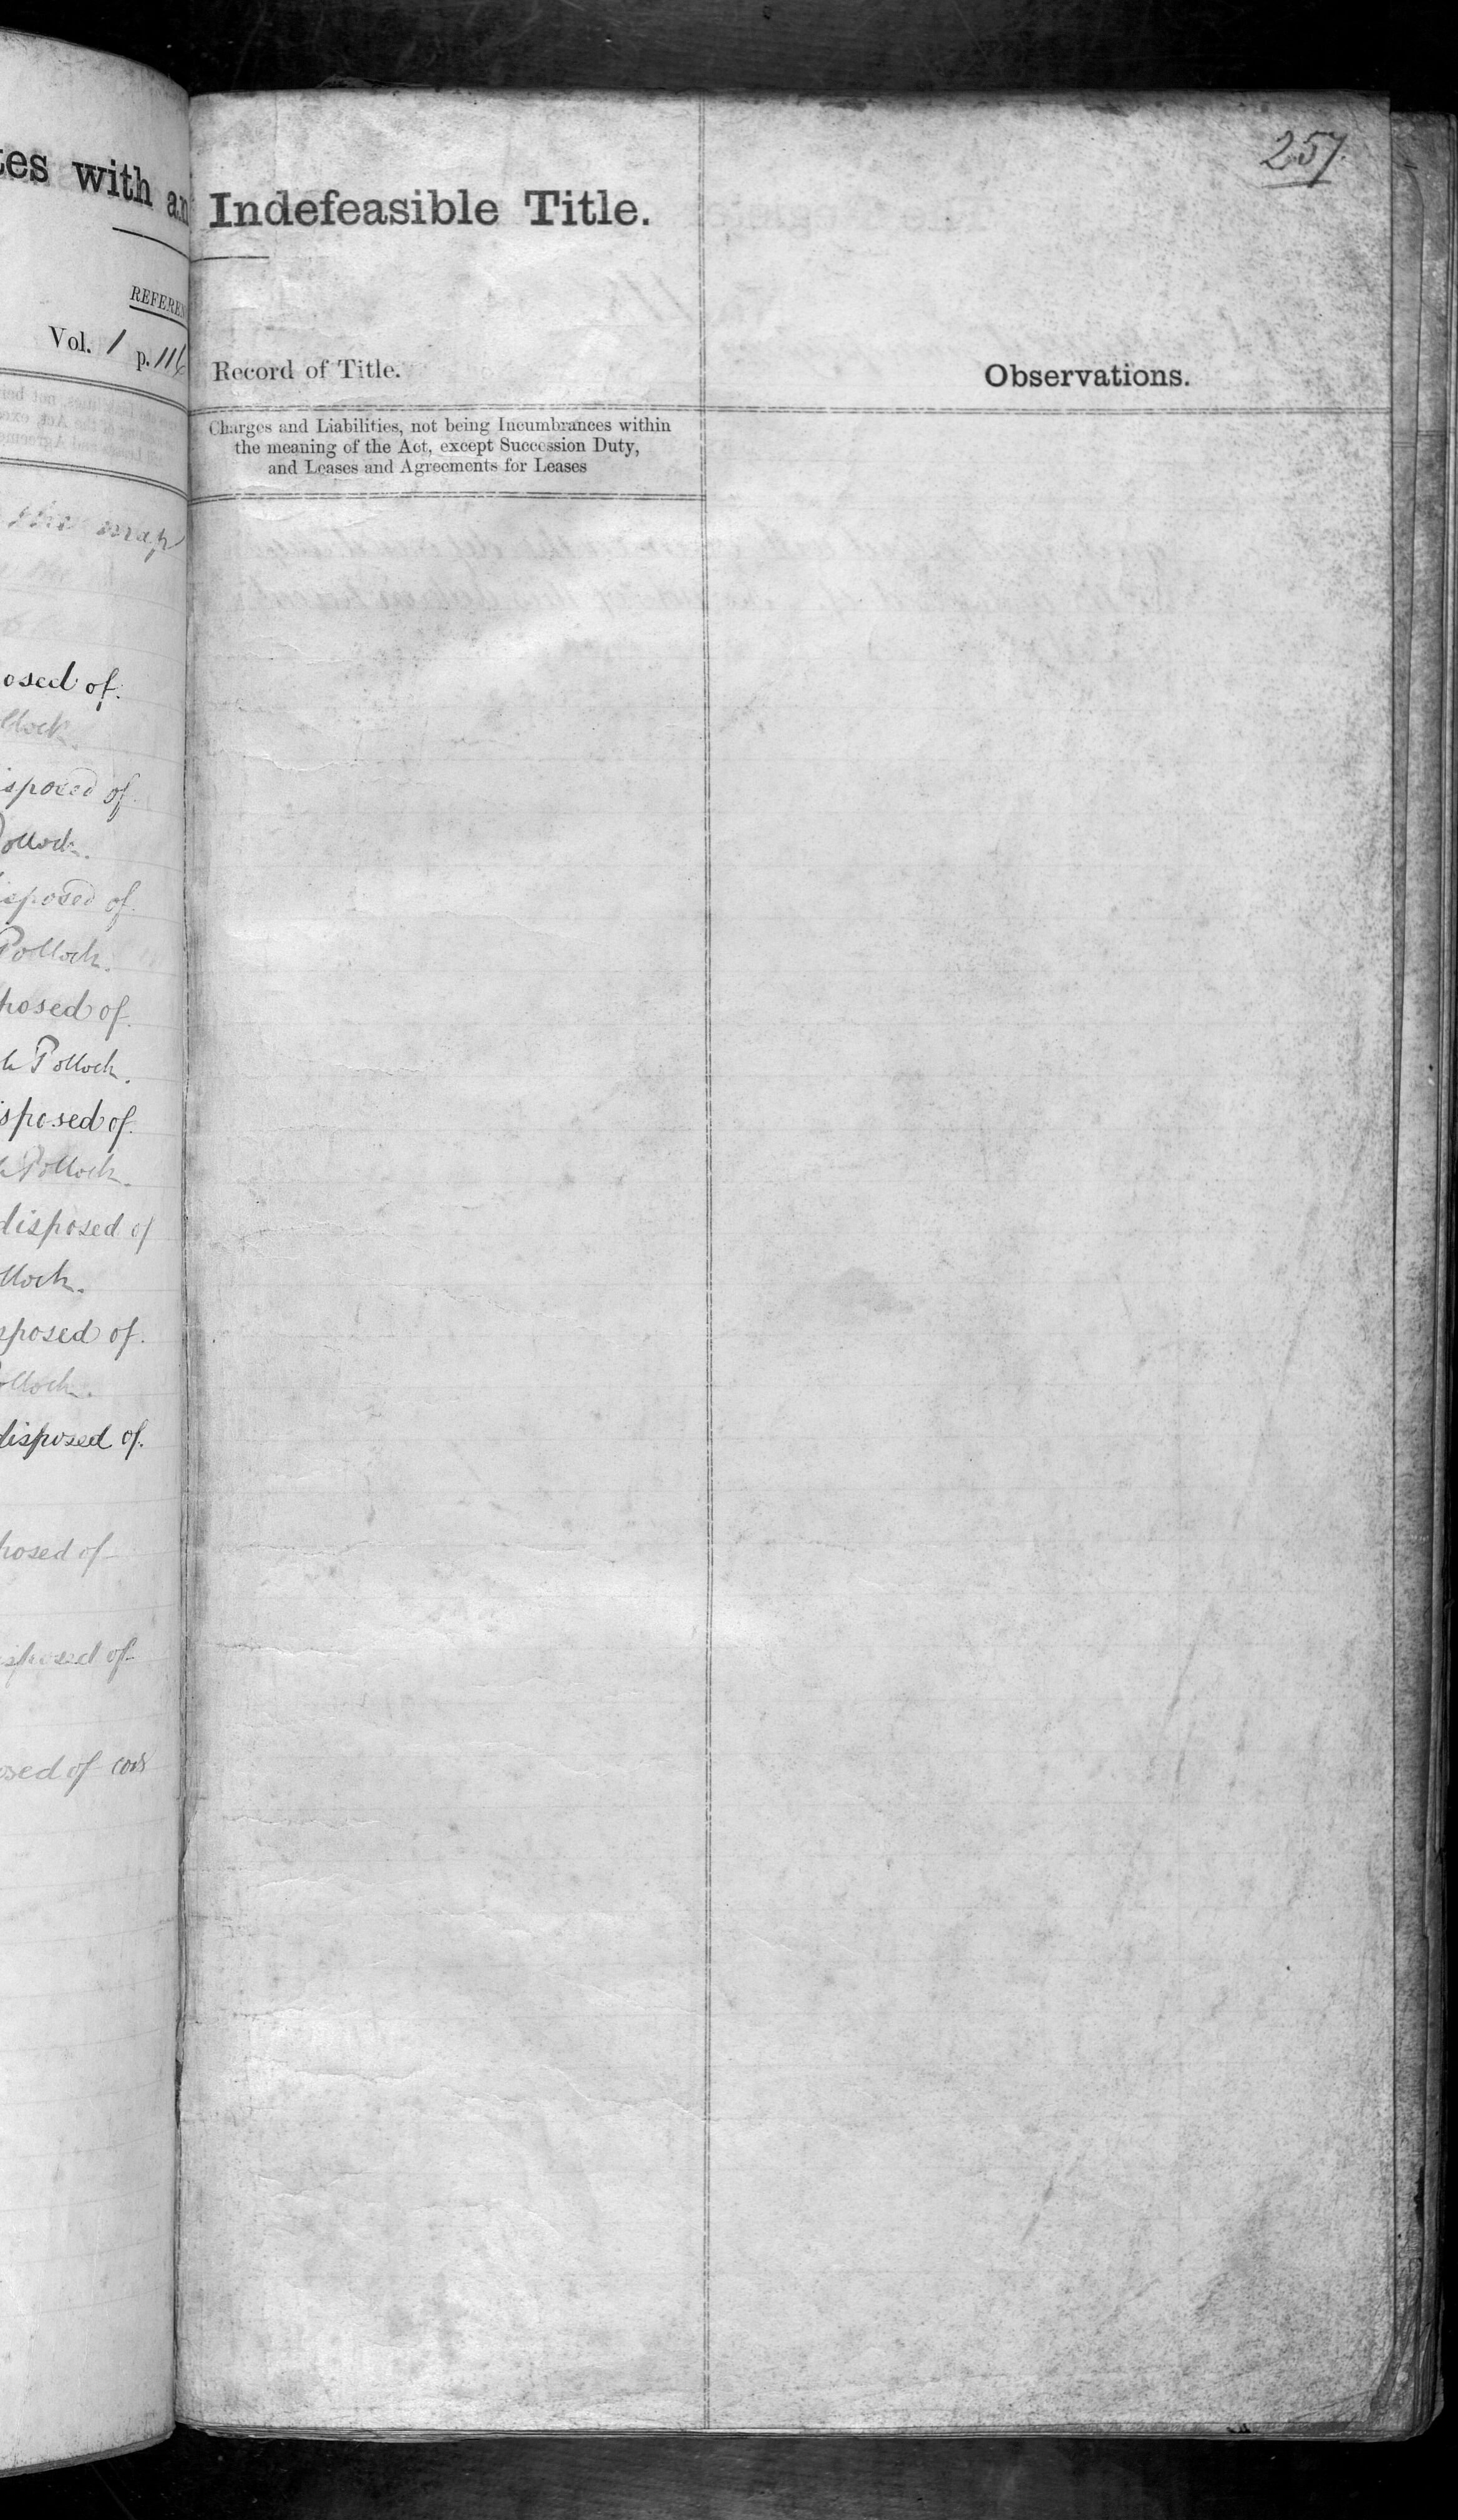 tes with an
REFEREN
Vol. 1 p. 116
the map
osed of.
llock.
isposed of.
Pollock.
isposed of.
Pollock.
posed of.
k Pollock.
isposed of.
k Pollock.
disposed of
llock.
sposed of.
ollock.
disposed of.
posed of
isposed of
osed of cons
257.
Indefeasible Title.
Record of Title.
Observations.
Charges and Liabilities, not being Incumbrances within
the meaning of the Act, except Succession Duty,
and Leases and Agreements for Leases